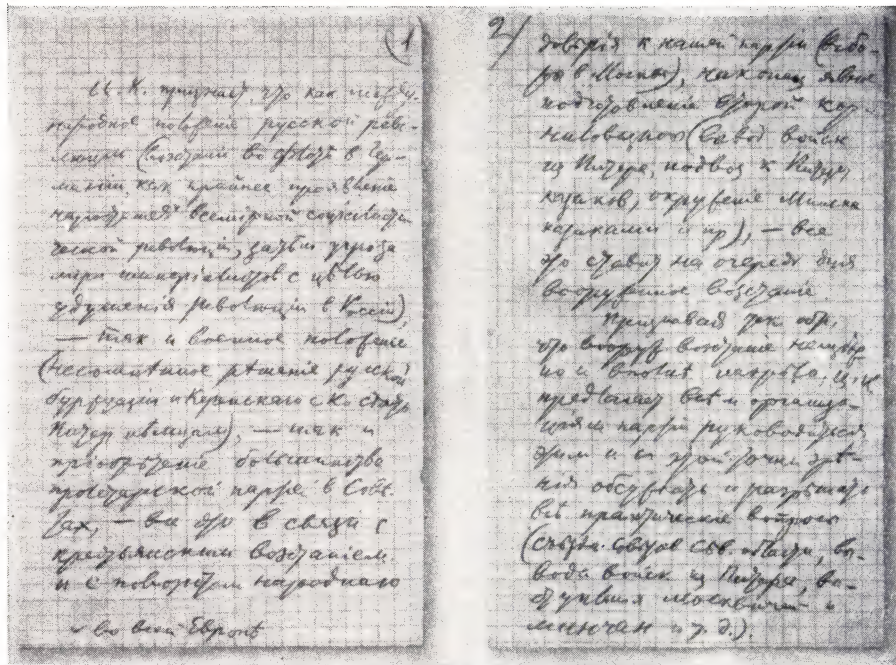 (1
Ц. К. признает, что как между-
народное положение русской рево-
люции (восстание во флоте в Гер-
мании, как крайнее проявление
нарастания всемирной социалисти-
ческой революции, затем угроза
мира империалистов с целью
удушения революции в России),
— так и военное положение
(несомненное решение русской
буржуазии и Керенского с Ко сдать
Питер немцам), — так и
приобретение большинства
пролетарской партией в Сове-
тах, — все это в связи с
крестьянским восстанием
и с поворотом народного
во всей Европѣ
2)
довѣрія к нашей партіи (выбо-
ры в Москвѣ), наконец явное
подготовленіе второй кор-
ниловщины (вывод войск
из Питера, подвоз к Питеру
казаков, окруженіе Минска
казаками и пр), — все
это ставит на очередь дня
вооруженное возстаніе
Признавая так. обр.,
что вооруж возстаніе неизбѣж-
но и вполнѣ назрѣло, Ц. К.
предлагает всѣм организа-
ціям партіи руководиться
этим и с этой точки зрѣ-
нія обсуждать и разрѣшать
всѣ практическіе вопросы
(съѣзда Совѣтов Сѣв. области, вы-
вода войск из Питера, вы-
ступленія москвичей и
минчан и т. д.).